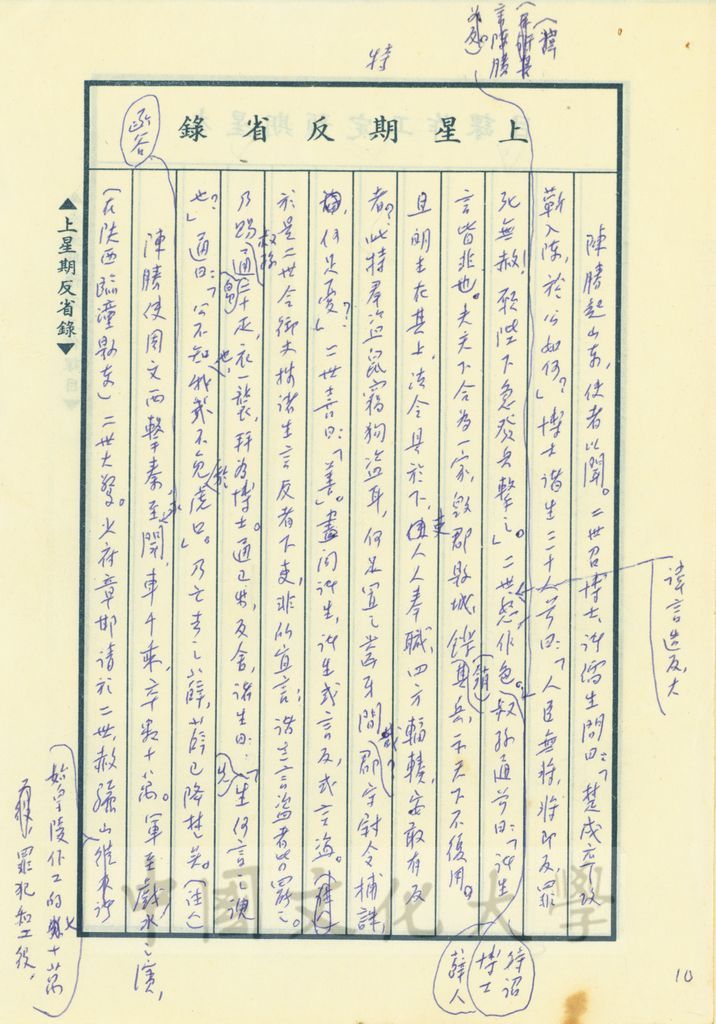 特
上星期反省錄
陳勝起山東，使者以聞。二世召博士諸儒生問曰：「楚戍卒攻
蘄入陳，於公如何？」博士諸生三十人前曰：「人臣無將，將即反，罪
死無赦！願陛下急發兵擊之。」二世怒作色。叔孫通前曰：「諸生
言皆非也。夫天下合為一家，毀郡縣城，鑠其兵，示天下不復用。
且明主在其上，法令具於下，使人人奉職，四方輻輳，安敢有反
者？此特群盜鼠竊狗盜耳，何足置之齒牙間！郡守尉令捕誅，
何足憂？」二世喜曰：「善。」盡問諸生，諸生或言反，或言盜。
於是二世令御史按諸生言反者下吏，非所宜言；諸生言盜者皆罷之。
乃賜叔孫通帛二十疋，衣一襲，拜為博士。通已出，反舍，諸生曰：「先生何言之諛
也？」通曰：「公不知也，我幾不免於虎口。」乃亡去之薛，薛已降楚矣。
陳勝使周文西擊秦，至關，車千乘，卒數十萬。軍至戲水之濱，
（在陝西臨潼縣東）二世大驚。少府章邯請於二世，赦驪山徒
函谷
諱言造反
待詔
博士
薛人
始皇陵作工的數十萬
罪犯
▲上星期反省錄▼
中國文化大學
10